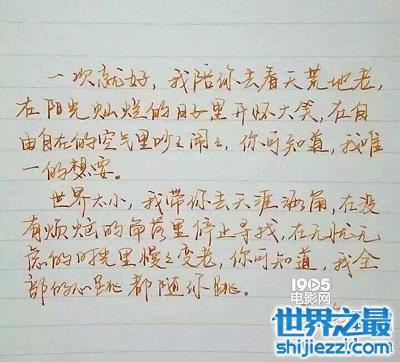 一次就好，我陪你去看天荒地老，
在阳光灿烂的日子里开怀大笑，在自
由自在的空气里吵吵闹闹，你可知道，我唯
一的想要。
世界太小，我带你去天涯海角，在没
有烦恼的角落里停止寻找，在无忧无
虑的时光里慢慢变老，你可知道，我全
部的心跳都随你跳。
1905
电影网
世界之最
shijiezzi.com